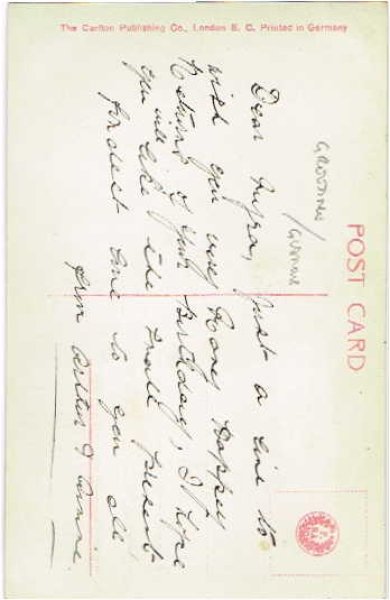 The Carlton Publishing Co., London E. C. Printed in Germany
POST CARD
Dear Myra, Just a line to
wish you many Happy
Returns of your Birthday, I hope
you will like the small present
fondest love to you all
from